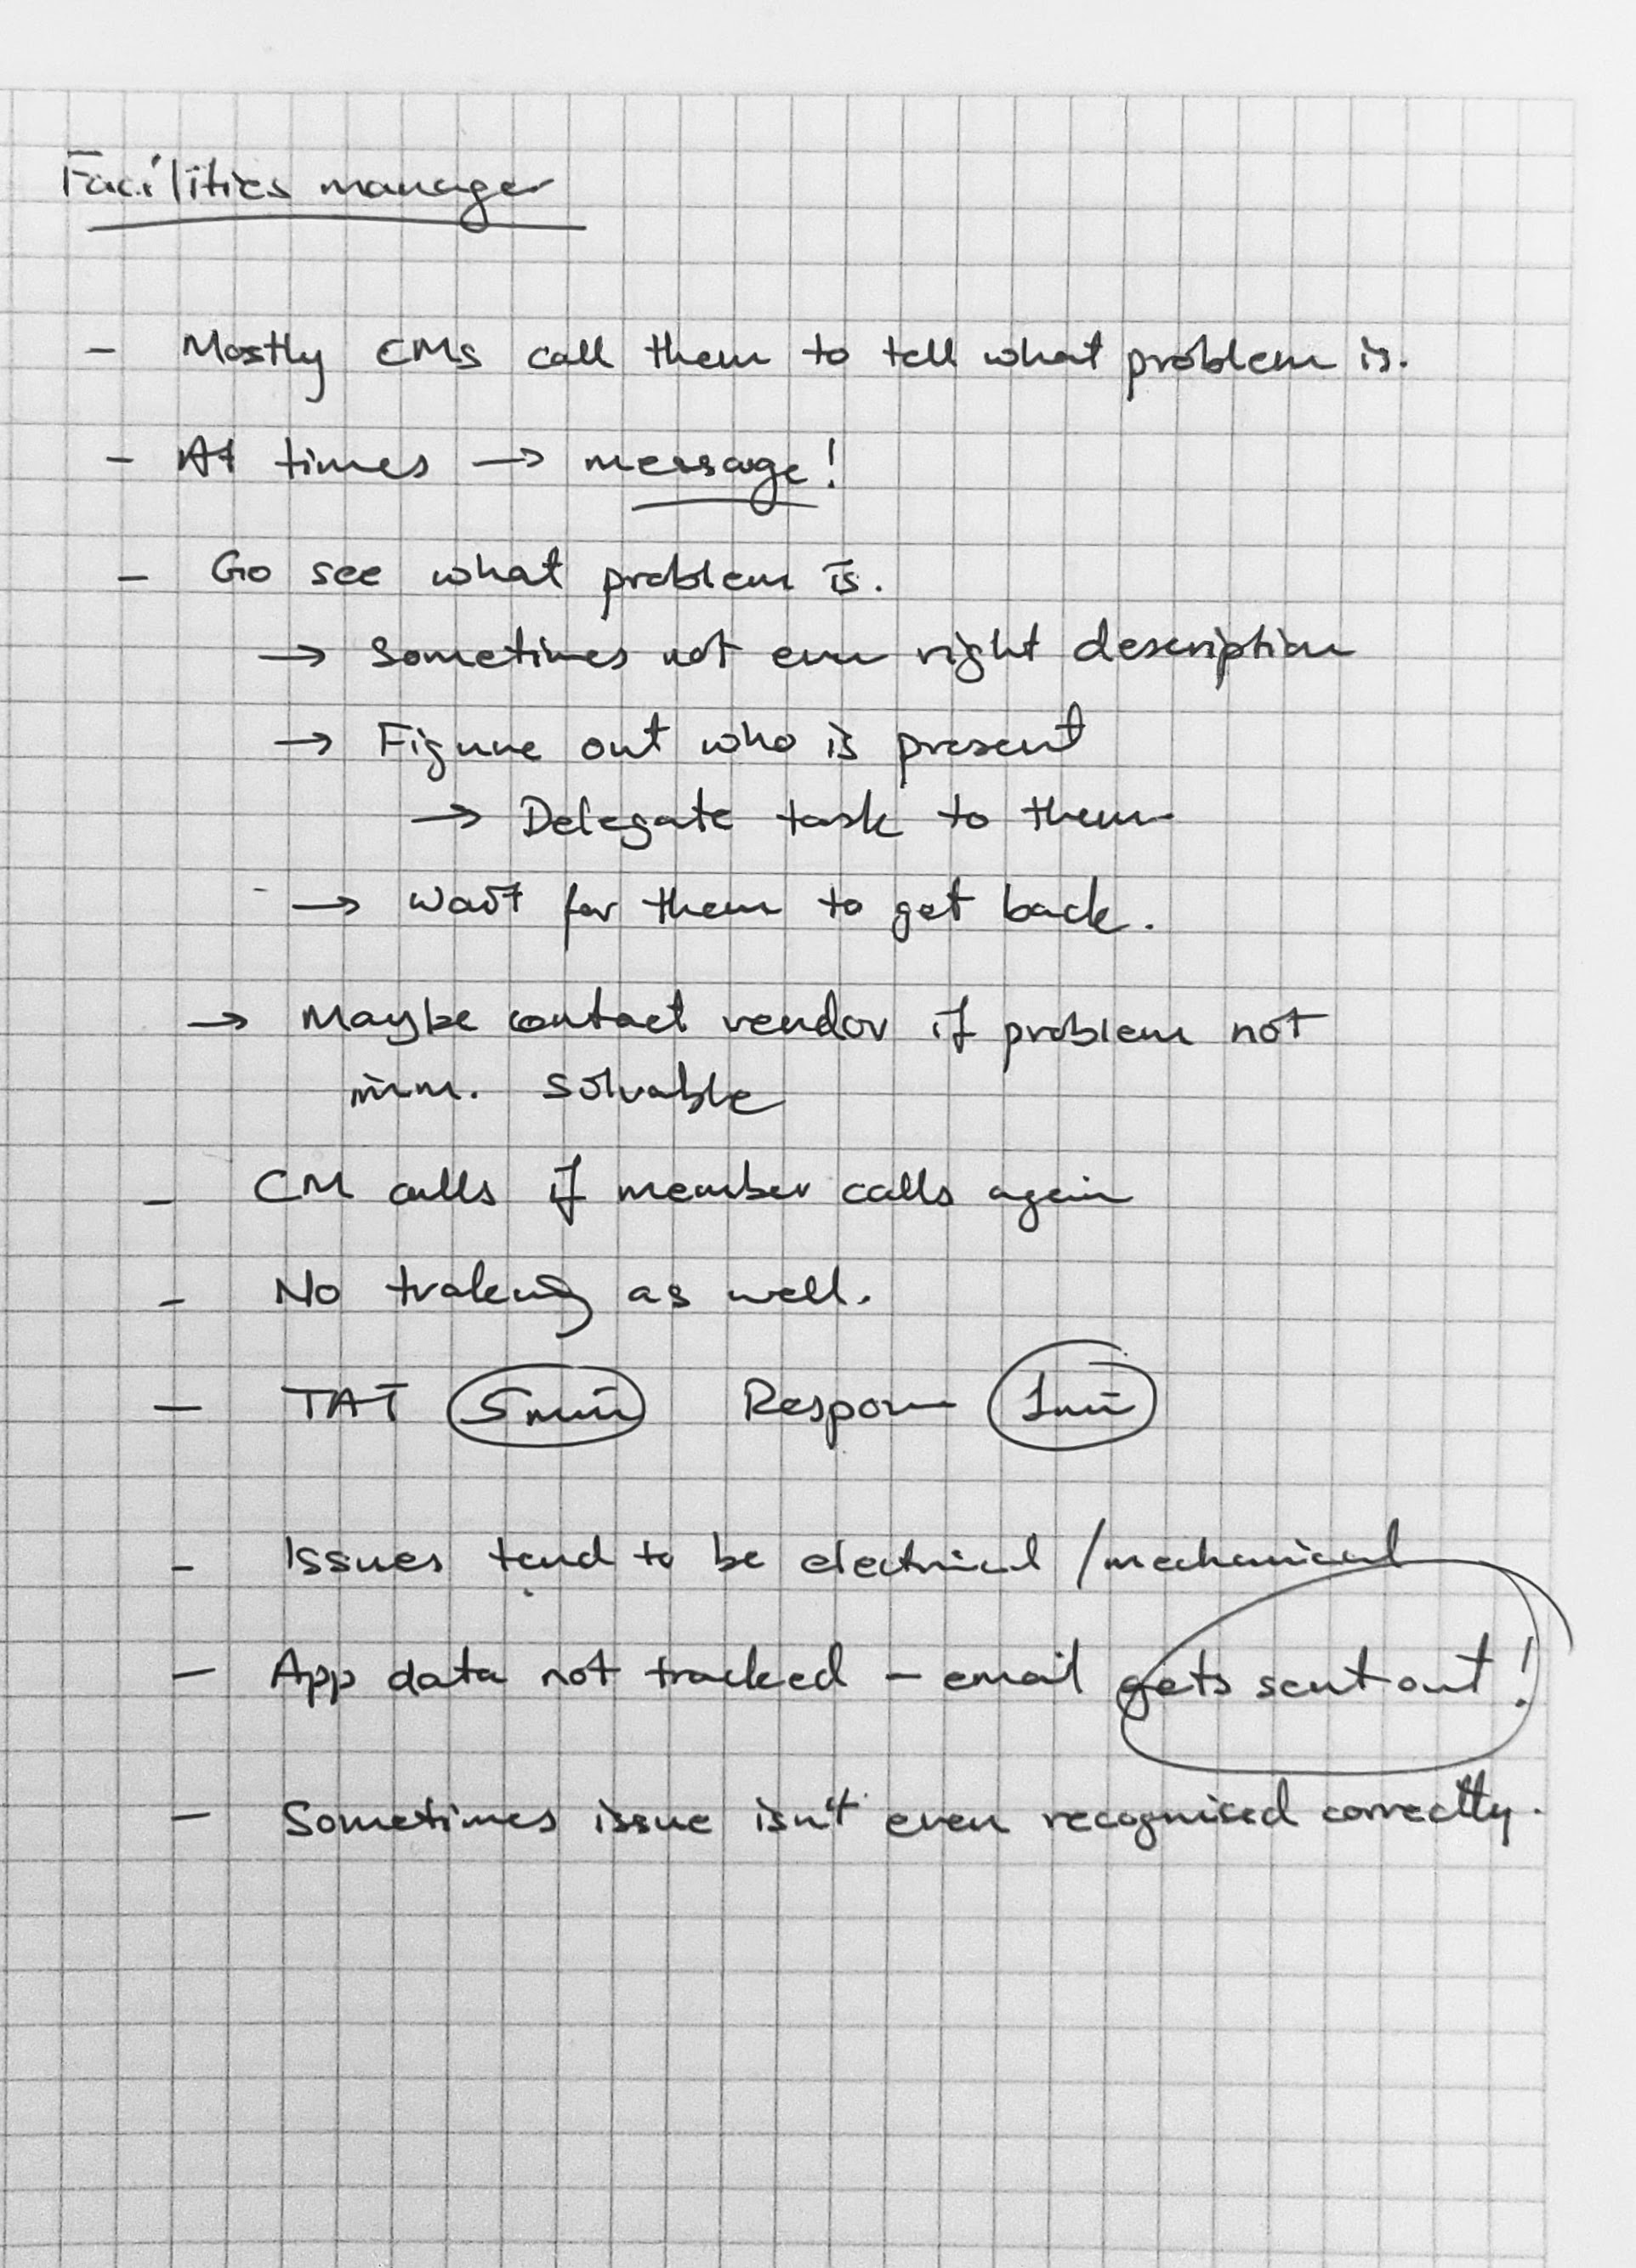 Facilities manager
- Mostly CMs call them to tell what problem is.
- At times → message!
- Go see what problem is.
→ Sometimes not even right description
→ Figure out who is present
→ Delegate task to them
→ wait for them to get back.
→ Maybe contact vendor if problem not
imm. solvable
- CM calls if member calls again
- No traking as well.
- TAT 5 min Respon 1 min
- Issues tend to be electrical / mechanical
- App data not tracked - email gets sent out!
- Sometimes issue isn't even recognised correctly.